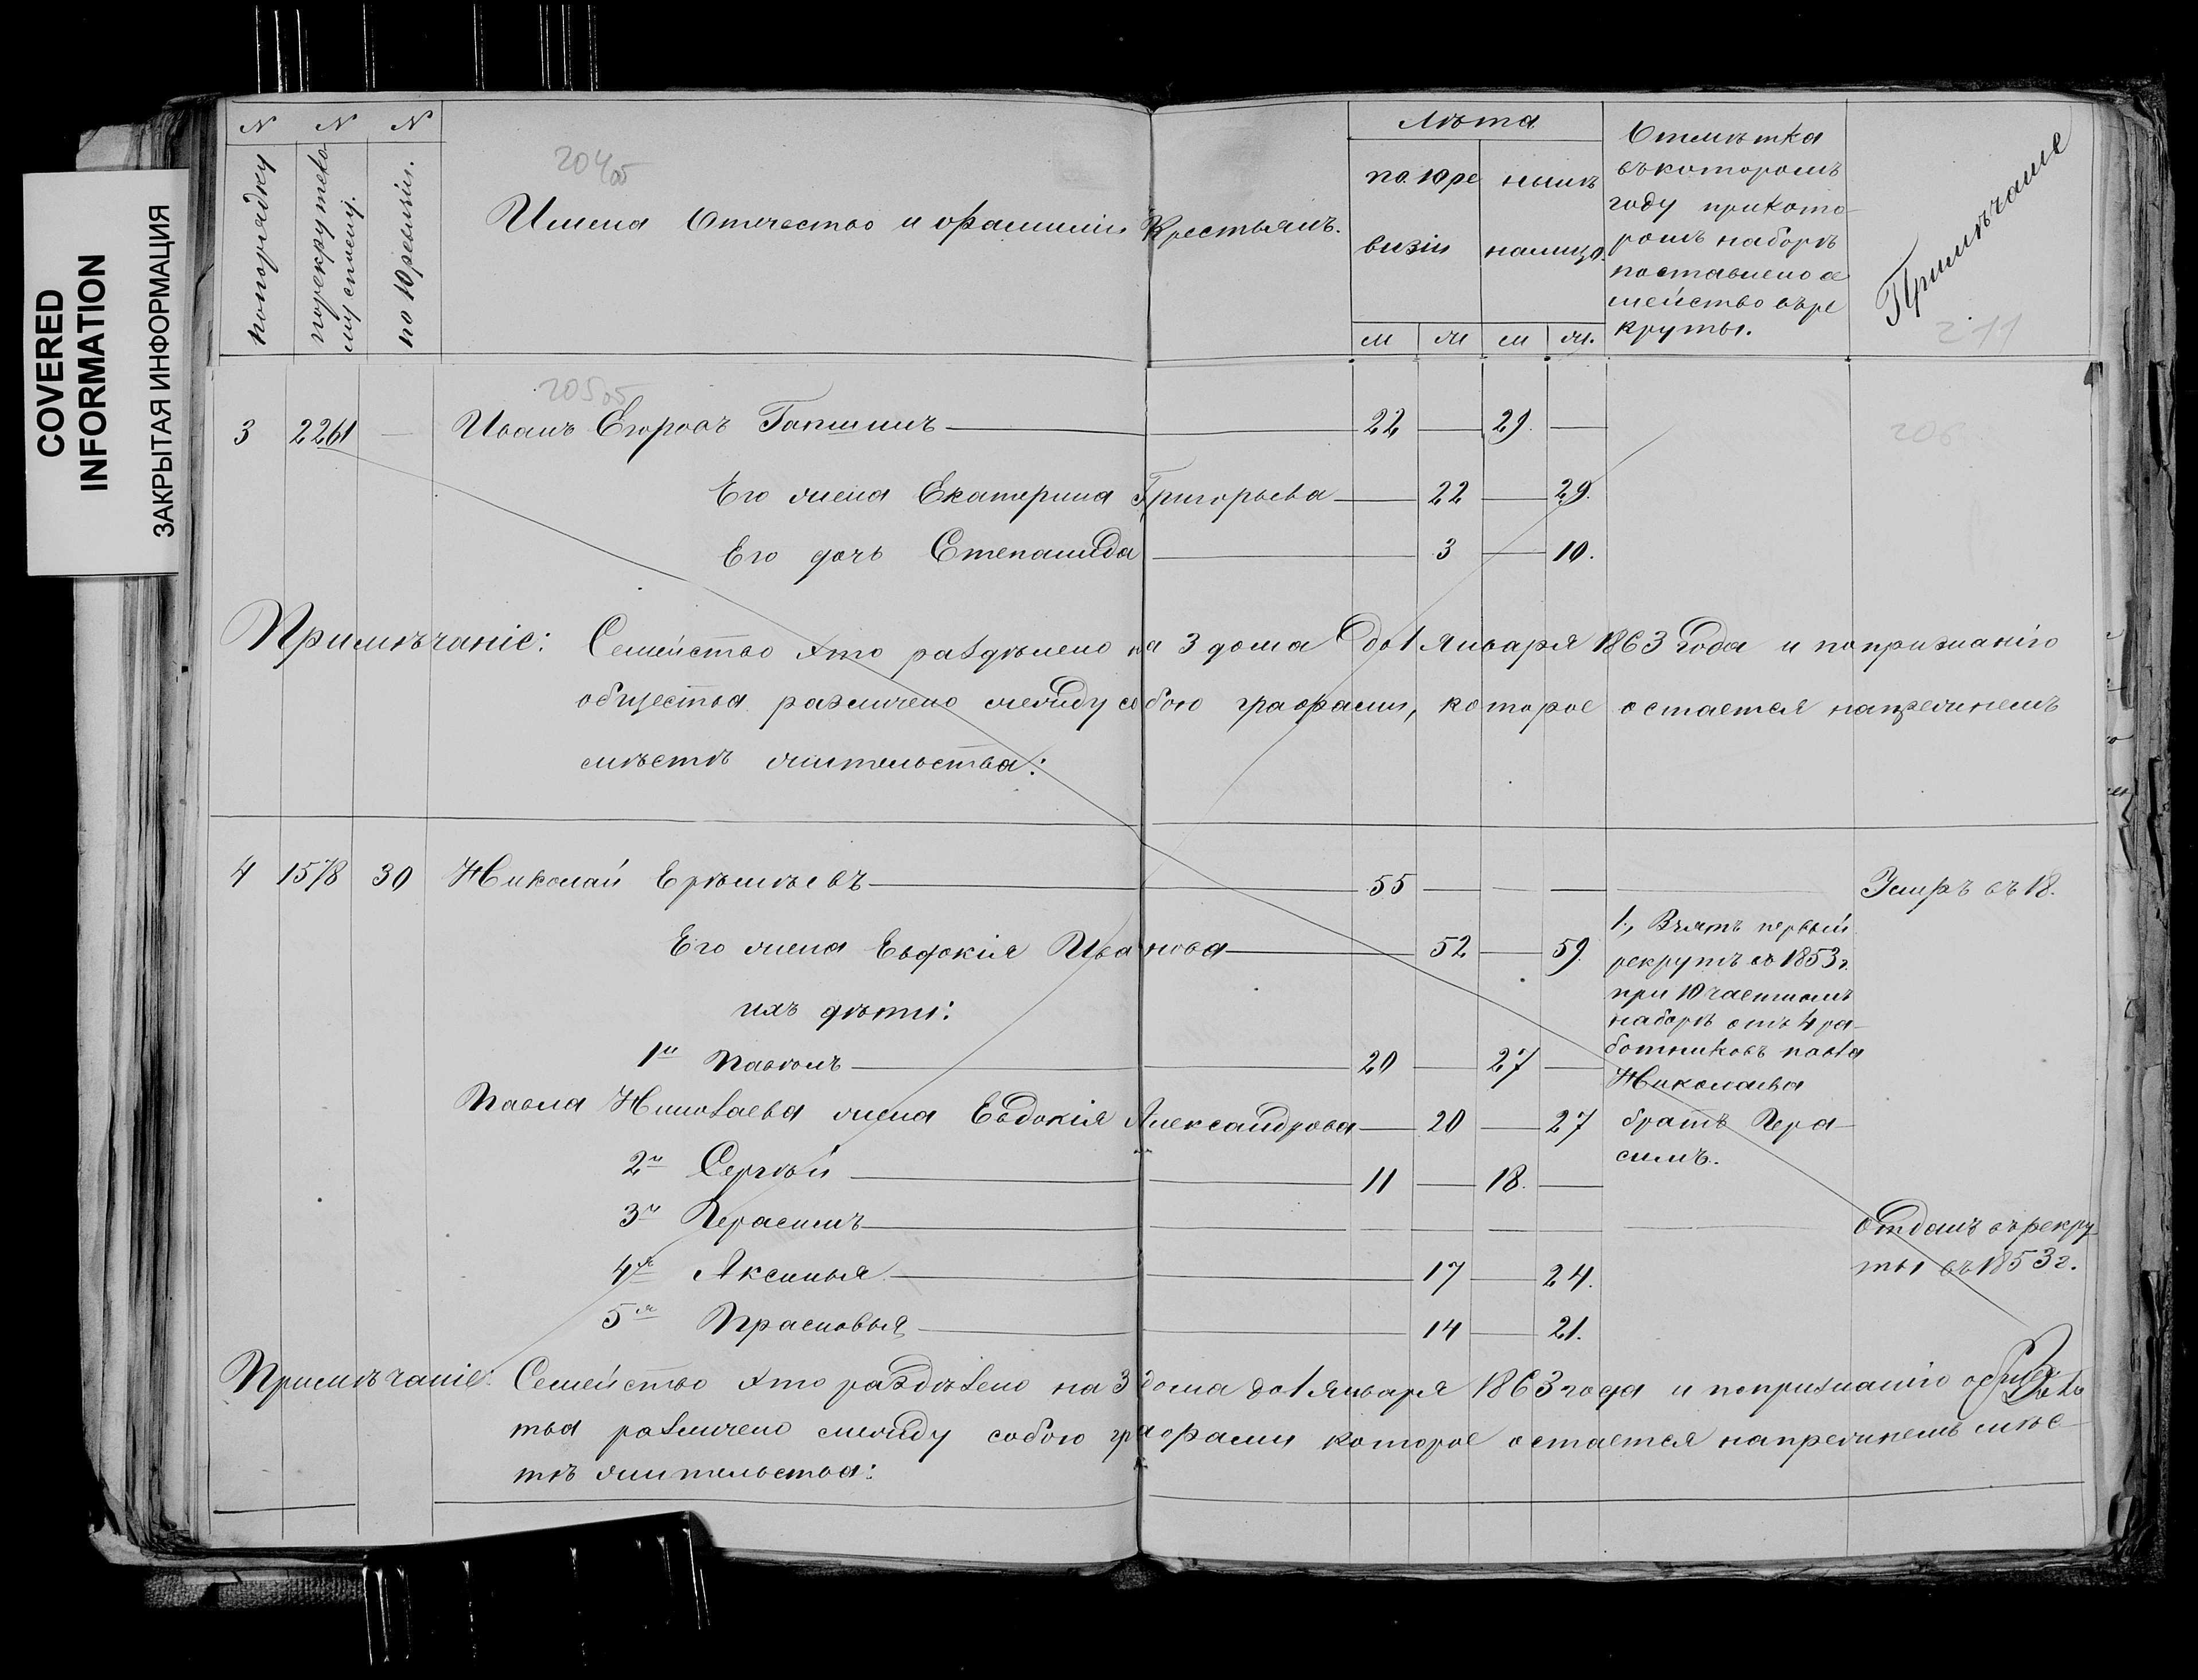 COVERED
INFORMATION
ЗАКРЫТАЯ ИНФОРМАЦИЯ
N N N
по порядку
по рекрутско
му списку.
по 10 ревизіи.
Имена Отчество и фамиліи Крестьянъ.
Лѣта
по 10 ре
визіи
нынѣ
налицо.
м ж м ж.
Отмѣтка
въ которомъ
году прикото-
ромъ наборѣ
поставлено се
мейство въре
круты.
Примѣчаніе
204 об
211
205 об
206
3 2261 — Иванъ Егоровъ Гапшинъ 22 — 29. —
Его жена Екатерина Григорьева — 22 — 29.
Его дочь Степанида 3 — 10.
Примѣчаніе: Семейство это раздѣлено на 3 дома до 1 Января 1863 года и попризнанію
общества различено между собою графами, которое остается напрежнемъ
мѣстѣ жительства:
4 1578 30 Николай Ерѣмѣевъ — 55 — — — Умръ въ 18.
Его жена Евдокія Иванова — 52 — 59.
1., Взятъ первый
рекрутъ въ 1853 г.
при 10 частномъ
наборѣ отъ 4 ра-
ботниковъ Павла
Николаева
братъ Гера-
симъ.
ихъ дѣти:
1й Павелъ — 20 — 27 —
Павла Николаева жена Евдокія Александрова — 20 — 27
2й Сергѣй — 11 — 18. —
3й Герасимъ — — — —
отданъ върекру
ты въ 1853 г.
4я Аксинья — 17 — 24.
5я Прасковья — 14 — 21.
Примѣчаніе: Семейство это раздѣлено на 3 дома до 1 Января 1863 года и попризнанію общес
тва различено между собою графами которое остается напрежнемъ мѣс-
тѣ жительства: